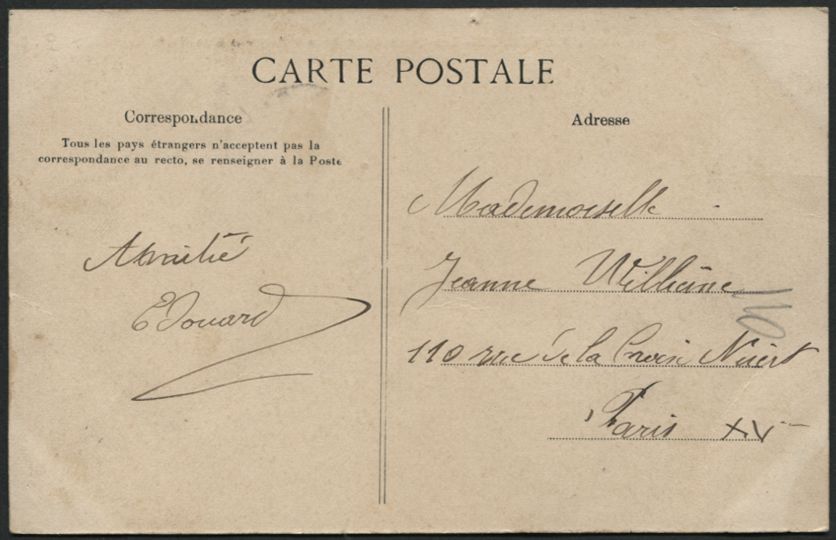 CARTE POSTALE
Correspondance
Tous les pays étrangers n'acceptent pas la
correspondance au recto, se renseigner à la Poste
Amitié
Edouard
Adresse
Mademoiselle
Jeanne
110 rue de la Croix Nivert
Paris XV
110